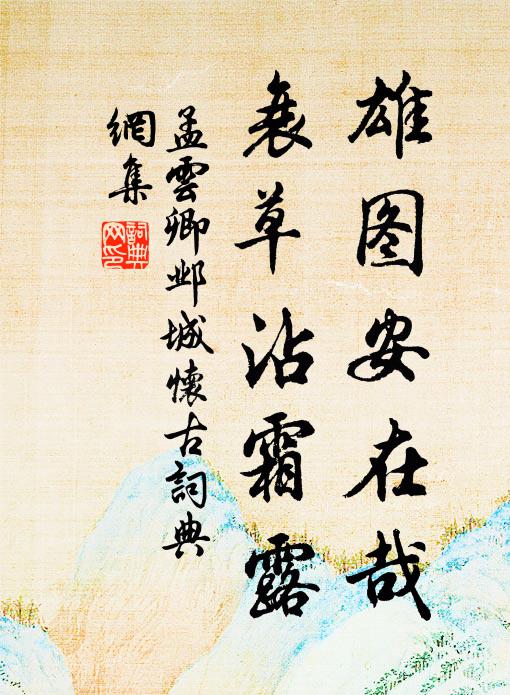 雄图安在哉
衰草沾霜露
孟雲卿邺城懷古詞典
網集
詞典网印